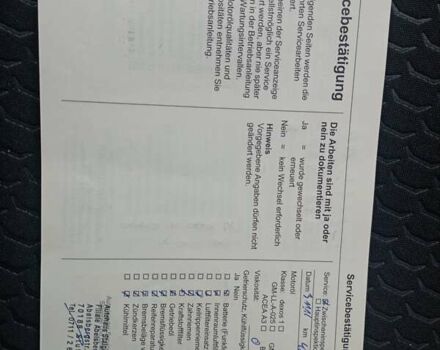 cebestätigung
genden Seiten werden die
rten Servicearbeiten
ert.
einen der Serviceanzeige
llstmöglich ein Service
rt werden, aber nie später
n in der Betriebsanleitung
Wartungsintervallen.
otorölqualitäten und
ositäten entnehmen Sie
riebsanleitung.
Die Arbeiten sind mit ja oder
nein zu dokumentieren
Ja = wurde gewechselt oder
erneuert
Nein = kein Wechsel erforderlich
Hinweis
Vorgegebene Angaben dürfen nicht
geändert werden.
Servicebestätigu
Service
Zwischeninsp
Hauptinspekti
Datum
km
Motoröl
Klasse: dexos 1
GM-LL-A-025
ACEA A3
Viskosität:
Gefrierschutz, Kühlflüssig
Ja Nein
Batterie (Funk
Innenraumluftfil
Luftfiltereinsatz
Keilrippenrieme
Zahnriemen
Kraftstofffilter
Getriebeöl
Bremsflüssigke
Reifenreparatu
Bremsbeläge v
Zündkerzen
Kühlmittel
Filiale
70188 Stu
Tel. 0711/2